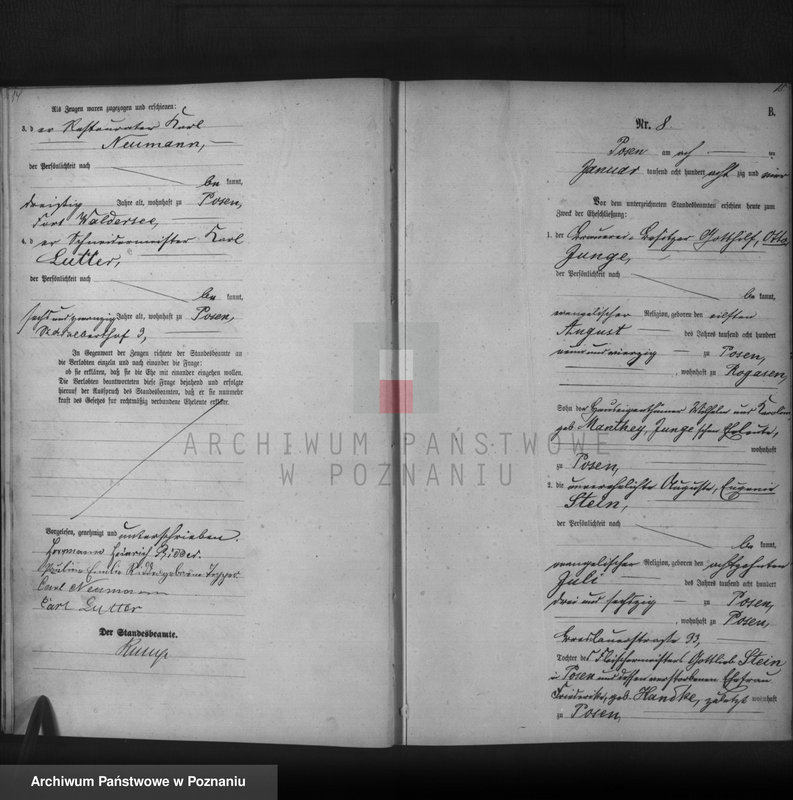 14
Als Zeugen waren zugezogen und erschienen:
3. der Restaurateur Karl
Neumann,
der Persönlichkeit nach
be kannt,
dreissig Jahre alt, wohnhaft zu Posen,
Fort Waldersee,
4. der Schneidermeister Karl
Lutter,
der Persönlichkeit nach
be kannt,
sechs und zwanzig Jahre alt, wohnhaft zu Posen,
3,
In Gegenwart der Zeugen richtete der Standesbeamte an
die Verlobten einzeln und nach einander die Frage:
ob sie erklären, daß sie die Ehe mit einander eingehen wollen.
Die Verlobten beantworteten diese Frage bejahend und erfolgte
hierauf der Ausspruch des Standesbeamten, daß er sie nunmehr
kraft des Gesetzes für rechtmäßig verbundene Eheleute erkläre.
Vorgelesen, genehmigt und unterschrieben.
Hermann Heinrich
Emilie geborene
Carl Neumann
Carl Lutter
Der Standesbeamte.
B.
Nr. 8
Posen am ach ten
Januar tausend acht hundert acht zig und vier
Vor dem unterzeichneten Standesbeamten erschien heute zum
Zweck der Eheschließung:
1. der Brauerei-Besitzer Gotthilf, Otto
Junge,
der Persönlichkeit nach
be kannt,
evangelischer Religion, geboren den eilften
August des Jahres tausend acht hundert
neun und vierzig zu Posen,
, wohnhaft zu Rogasen,
Sohn der Hauseigenthümer Wilhelm und Karoline
geb. Manthey, Junge'schen Eheleute,
wohnhaft
zu Posen,
2. die unverehelichte Auguste, Eugenie
Stein,
der Persönlichkeit nach
be kannt,
evangelischer Religion, geboren den achtzehnten
Juli des Jahres tausend acht hundert
drei und sechszig zu Posen,
, wohnhaft zu Posen,
Breslauerstraße 33,
Tochter des Fleischermeisters Gottlieb Stein
in Posen und dessen verstorbenen Ehefrau
Friederike, geb. Handke, zuletzt wohnhaft
zu Posen,
ARCHIWUM PAŃSTWOWE
W POZNANIU
Archiwum Państwowe w Poznaniu